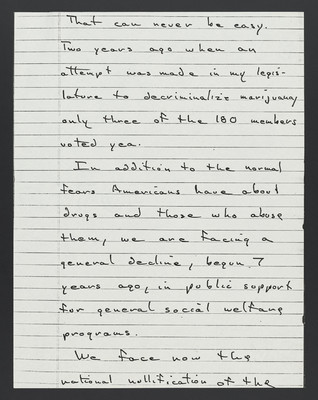 That can never be easy.
Two years ago when an
attempt was made in my legis-
lature to decriminalize marijuana
only three of the 180 members
voted yea.
In addition to the normal
fears Americans have about
drugs and those who abuse
them, we are facing a
general decline, begun 7
years ago, in public support
for general social welfare
programs.
We face now the
national nullification of the